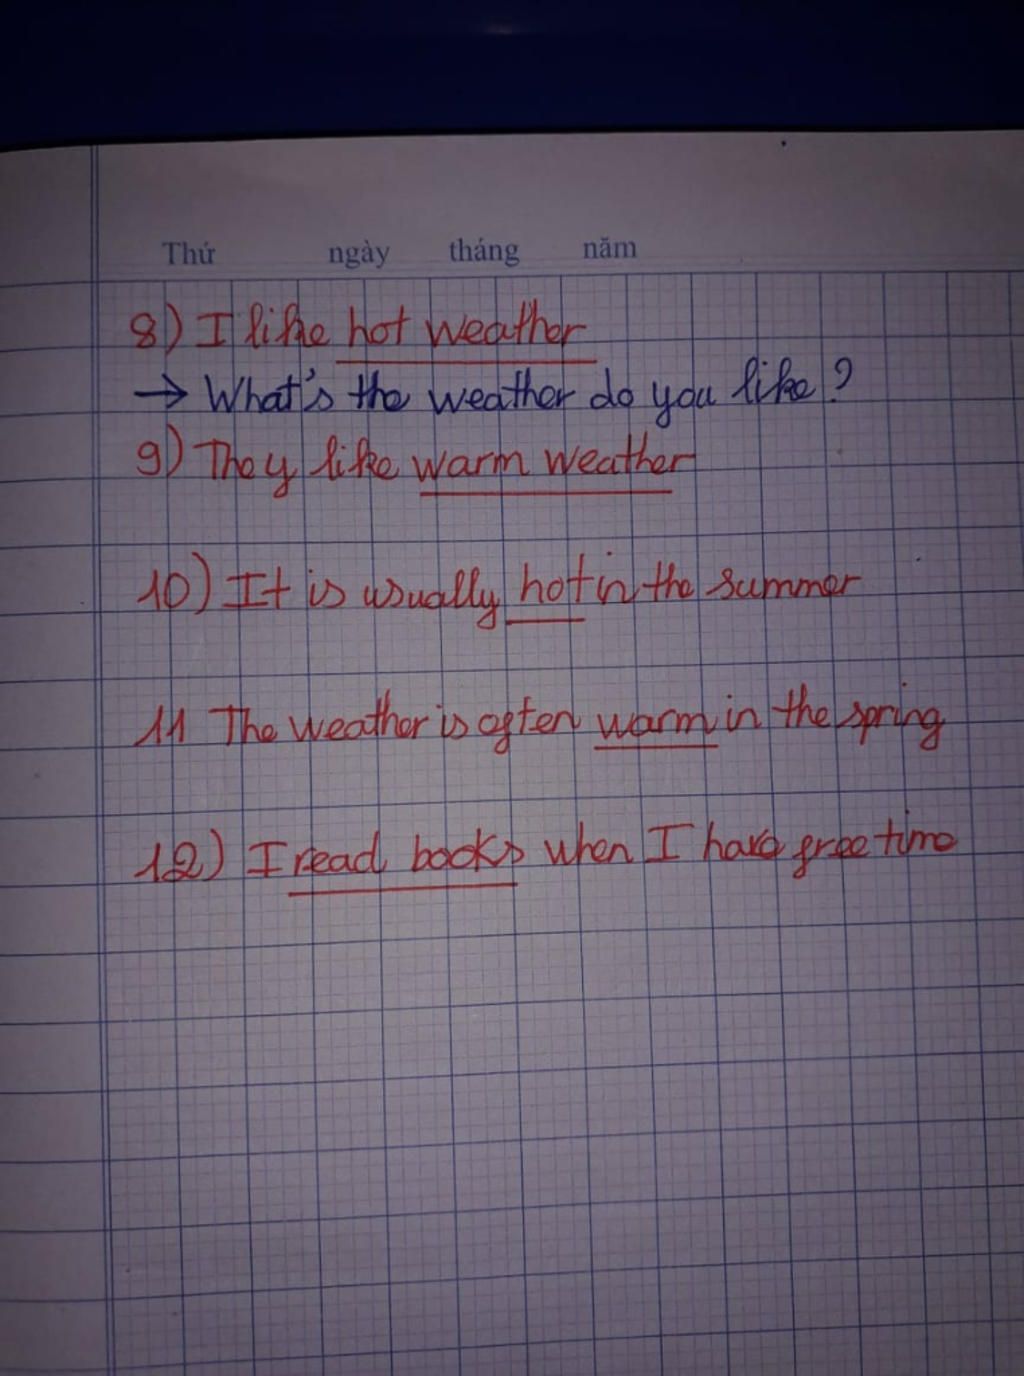 Thứ ngày tháng năm
8) I like hot weather
→ What's the weather do you like?
9) They like warm weather
10) It is usually hot in the summer
11 The weather is often warm in the spring
12) I read books when I have free time